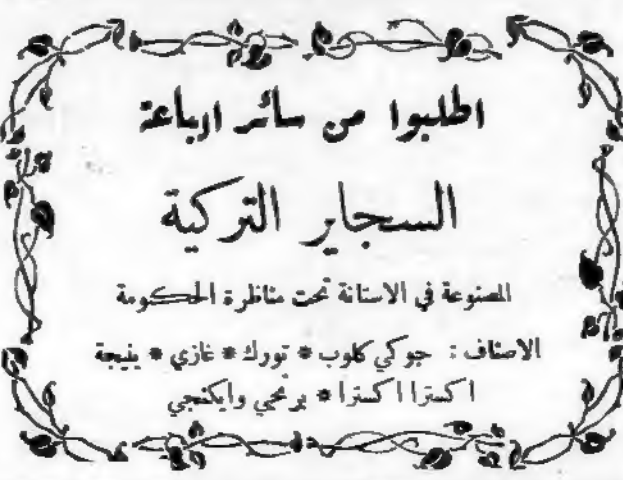 اطلبوا من سائر الباعة
السجاير التركية
المصنوعة في الاستانة تحت مناظرة الحكومة
الاصناف : جوكي كلوب * تورك * غازي * ينيجة
اكسترا اكسترا * برنجي وايكنجي